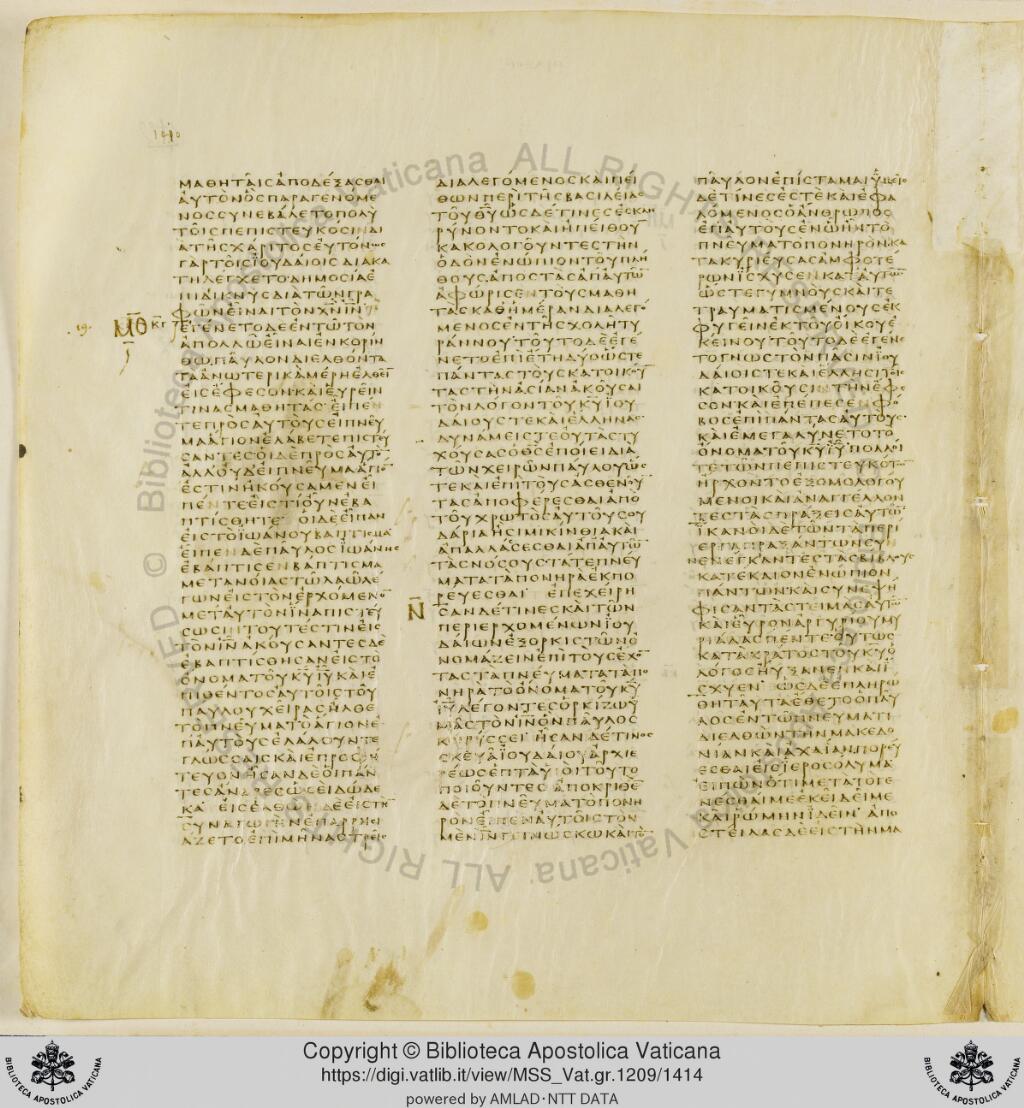 ΜΑΘΗΤΑΙΣΑΠΟΔΕΞΑΣΘΑΙ
ΑΥΤΟΝΟΣΠΑΡΑΓΕΝΟΜΕ
ΝΟΣΣΥΝΕΒΑΛΕΤΟΠΟΛΥ
ΤΟΙΣΠΕΠΙΣΤΕΥΚΟΣΙΔΙ
ΑΤΗΣΧΑΡΙΤΟΣΕΥΤΟΝΩΣ
ΓΑΡΤΟΙΣΙΟΥΔΑΙΟΙΣΔΙΑΚΑ
ΤΗΛΕΓΧΕΤΟΔΗΜΟΣΙΑΕ
ΠΙΔΙΚΝΥΣΔΙΑΤΩΝΓΡΑ
ΦΩΝΕΙΝΑΙΤΟΝΧΝΙΝ
ΕΓΕΝΕΤΟΔΕΕΝΤΩΤΟΝ
ΑΠΟΛΛΩΕΙΝΑΙΕΝΚΟΡΙΝ
ΘΩΠΑΥΛΟΝΔΙΕΛΘΟΝΤΑ
ΤΑΑΝΩΤΕΡΙΚΑΜΕΡΗΕΛΘΕΙ
ΕΙΣΕΦΕΣΟΝΚΑΙΕΥΡΕΙΝ
ΤΙΝΑΣΜΑΘΗΤΑΣΕΙΠΕΝ
ΤΕΠΡΟΣΑΥΤΟΥΣΕΙΠΝΕΥ
ΜΑΑΓΙΟΝΕΛΑΒΕΤΕΠΙΣΤΕΥ
ΣΑΝΤΕΣΟΙΔΕΠΡΟΣΑΥΤΟ
ΑΛΛΟΥΔΕΙΠΝΕΥΜΑΑΓΙΟ
ΕΣΤΙΝΗΚΟΥΣΑΜΕΝΕΙ
ΠΕΝΤΕΕΙΣΤΙΟΥΝΕΒΑ
ΠΤΙΣΘΗΤΕ ΟΙΔΕΕΙΠΑΝ
ΕΙΣΤΟΙΩΑΝΟΥΒΑΠΤΙΣΜΑ
ΕΙΠΕΝΔΕΠΑΥΛΟΣΙΩΑΝΗΣ
ΕΒΑΠΤΙΣΕΝΒΑΠΤΙΣΜΑ
ΜΕΤΑΝΟΙΑΣΤΩΛΑΩΛΕ
ΓΩΝΕΙΣΤΟΝΕΡΧΟΜΕΝΟ
ΜΕΤΑΥΤΟΝΙΝΑΠΙΣΤΕΥ
ΣΩΣΙΝΤΟΥΤΕΣΤΙΝΕΙΣ
ΤΟΝΙΝΑΚΟΥΣΑΝΤΕΣΔΕ
ΕΒΑΠΤΙΣΘΗΣΑΝΕΙΣΤΟ
ΟΝΟΜΑΤΟΥΚΥΙΥΚΑΙΕ
ΠΙΘΕΝΤΟΣΑΥΤΟΙΣΤΟΥ
ΠΑΥΛΟΥΧΕΙΡΑΣΗΛΘΕ
ΤΟΠΝΕΥΜΑΤΟΑΓΙΟΝΕ
ΠΑΥΤΟΥΣΕΛΑΛΟΥΝΤΕ
ΓΛΩΣΣΑΙΣΚΑΙΕΠΡΟΦΗ
ΤΕΥΟΝΗΣΑΝΔΕΟΙΠΑΝ
ΤΕΣΑΝΔΡΕΣΩΣΕΙΔΩΔΕ
ΚΑ ΕΙΣΕΛΘΩΝΔΕΕΙΣΤΗ
ΣΥΝΑΓΩΓΗΝΕΠΑΡΡΗΣΙ
ΑΖΕΤΟΕΠΙΜΗΝΑΣΤΡΕΙΣ
ΜΘ
ΔΙΑΛΕΓΟΜΕΝΟΣΚΑΙΠΕΙ
ΘΩΝΠΕΡΙΤΗΣΒΑΣΙΛΕΙΑΣ
ΤΟΥΘΥΩΣΔΕΤΙΝΕΣΕΣΚΛΗ
ΡΥΝΟΝΤΟΚΑΙΗΠΕΙΘΟΥ
ΚΑΚΟΛΟΓΟΥΝΤΕΣΤΗΝ
ΟΔΟΝΕΝΩΠΙΟΝΤΟΥΠΛΗ
ΘΟΥΣΑΠΟΣΤΑΣΑΠΑΥΤΩ
ΑΦΩΡΙΣΕΝΤΟΥΣΜΑΘΗ
ΤΑΣΚΑΘΗΜΕΡΑΝΔΙΑΛΕΓΟ
ΜΕΝΟΣΕΝΤΗΣΧΟΛΗΤΥ
ΡΑΝΝΟΥΤΟΥΤΟΔΕΕΓΕ
ΝΕΤΟΕΠΙΕΤΗΔΥΟΩΣΤΕ
ΠΑΝΤΑΣΤΟΥΣΚΑΤΟΙΚΟΥ
ΤΑΣΤΗΝΑΣΙΑΝΑΚΟΥΣΑΙ
ΤΟΝΛΟΓΟΝΤΟΥΚΥΙΟΥ
ΔΑΙΟΥΣΤΕΚΑΙΕΛΛΗΝΑΣ
ΔΥΝΑΜΕΙΣΤΕΟΥΤΑΣΤΥ
ΧΟΥΣΑΣΟΘΣΕΠΟΙΕΙΔΙΑ
ΤΩΝΧΕΙΡΩΝΠΑΥΛΟΥΩΣ
ΤΕΚΑΙΕΠΙΤΟΥΣΑΣΘΕΝΟΥ
ΤΑΣΑΠΟΦΕΡΕΣΘΑΙΑΠΟ
ΤΟΥΧΡΩΤΟΣΑΥΤΟΥΣΟΥ
ΔΑΡΙΑΗΣΙΜΙΚΙΝΘΙΑΚΑΙ
ΑΠΑΛΛΑΣΕΣΘΑΙΑΠΑΥΤΩ
ΤΑΣΝΟΣΟΥΣΤΑΤΕΠΝΕΥ
ΜΑΤΑΤΑΠΟΝΗΡΑΕΚΠΟ
ΡΕΥΕΣΘΑΙ ΕΠΕΧΕΙΡΗ
Ν
ΣΑΝΔΕΤΙΝΕΣΚΑΙΤΩΝ
ΠΕΡΙΕΡΧΟΜΕΝΩΝΙΟΥ
ΔΑΙΩΝΕΞΟΡΚΙΣΤΩΝΟ
ΝΟΜΑΖΕΙΝΕΠΙΤΟΥΣΕΧΟ
ΤΑΣΤΑΠΝΕΥΜΑΤΑΤΑΠΟ
ΝΗΡΑΤΟΟΝΟΜΑΤΟΥΚΥ
ΙΥΛΕΓΟΝΤΕΣΟΡΚΙΖΩΥ
ΜΑΣΤΟΝΙΝΟΝΠΑΥΛΟΣ
ΚΗΡΥΣΣΕΙ ΗΣΑΝΔΕΤΙΝΟΣ
ΣΚΕΥΑΙΟΥΔΑΙΟΥΑΡΧΙΕ
ΡΕΩΣΕΠΤΑΥΙΟΙΤΟΥΤΟ
ΠΟΙΟΥΝΤΕΣ ΑΠΟΚΡΙΘΕ
ΔΕΤΟΠΝΕΥΜΑΤΟΠΟΝΗ
ΡΟΝΕΙΠΕΝΑΥΤΟΙΣΤΟΝ
ΜΕΝΙΝΓΕΙΝΩΣΚΩΚΑΙΤΟ
ΠΑΥΛΟΝΕΠΙΣΤΑΜΑΙΥΜΕΙΣ
ΔΕΤΙΝΕΣΕΣΤΕΚΑΙΕΦΑ
ΛΟΜΕΝΟΣΟΑΝΘΡΩΠΟΣ
ΕΠΑΥΤΟΥΣΕΝΩΗΝΤΟ
ΠΝΕΥΜΑΤΟΠΟΝΗΡΟΝΚΑ
ΤΑΚΥΡΙΕΥΣΑΣΑΜΦΟΤΕ
ΡΩΝΙΣΧΥΣΕΝΚΑΤΑΥΤΩ
ΩΣΤΕΓΥΜΝΟΥΣΚΑΙΤΕ
ΤΡΑΥΜΑΤΙΣΜΕΝΟΥΣΕΚ
ΦΥΓΕΙΝΕΚΤΟΥΟΙΚΟΥΕ
ΚΕΙΝΟΥΤΟΥΤΟΔΕΕΓΕΝΕ
ΤΟΓΝΩΣΤΟΝΠΑΣΙΝΙΟΥ
ΔΑΙΟΙΣΤΕΚΑΙΕΛΛΗΣΙΤΟΙΣ
ΚΑΤΟΙΚΟΥΣΙΝΤΗΝΕΦΕ
ΣΟΝΚΑΙΕΠΕΠΕΣΕΝΦΟ
ΒΟΣΕΠΙΠΑΝΤΑΣΑΥΤΟΥΣ
ΚΑΙΕΜΕΓΑΛΥΝΕΤΟΤΟ
ΟΝΟΜΑΤΟΥΚΥΙΥΠΟΛΛΟΙ
ΤΕΤΩΝΠΕΠΙΣΤΕΥΚΟΤΩ
ΗΡΧΟΝΤΟΕΞΟΜΟΛΟΓΟΥ
ΜΕΝΟΙΚΑΙΑΝΑΓΓΕΛΛΟΝ
ΤΕΣΤΑΣΠΡΑΞΕΙΣΑΥΤΩ
ΙΚΑΝΟΙΔΕΤΩΝΤΑΠΕΡΙ
ΕΡΓΑΠΡΑΞΑΝΤΩΝΣΥΝ
ΕΝΕΓΚΑΝΤΕΣΤΑΣΒΙΒΛΟΥΣ
ΚΑΤΕΚΑΙΟΝΕΝΩΠΙΟΝ
ΠΑΝΤΩΝΚΑΙΣΥΝΕΨΗ
ΦΙΣΑΝΤΑΣΤΕΙΜΑΣΑΥΤΩ
ΚΑΙΕΥΡΟΝΑΡΓΥΡΙΟΥΜΥ
ΡΙΑΔΑΣΠΕΝΤΕΟΥΤΩΣ
ΚΑΤΑΚΡΑΤΟΣΤΟΥΚΥΟ
ΛΟΓΟΣΗΥΞΑΝΕΝΚΑΙΙ
ΣΧΥΕΝ ΩΣΔΕΕΠΛΗΡΩ
ΘΗΤΑΥΤΑΕΘΕΤΟΟΠΑΥ
ΛΟΣΕΝΤΩΠΝΕΥΜΑΤΙ
ΔΙΕΛΘΩΝΤΗΝΜΑΚΕΔΟ
ΝΙΑΝΚΑΙΑΧΑΙΑΝΠΟΡΕΥ
ΕΣΘΑΙΕΙΣΙΕΡΟΣΟΛΥΜΑ
ΕΙΠΩΝΟΤΙΜΕΤΑΤΟΓΕ
ΝΕΣΘΑΙΜΕΕΚΕΙΔΕΙΜΕ
ΚΑΙΡΩΜΗΝΙΔΕΙΝ ΑΠΟ
ΣΤΕΙΛΑΣΔΕΕΙΣΤΗΝΜΑ
Copyright © Biblioteca Apostolica Vaticana
https://digi.vatlib.it/view/MSS_Vat.gr.1209/1414
powered by AMLAD·NTT DATA